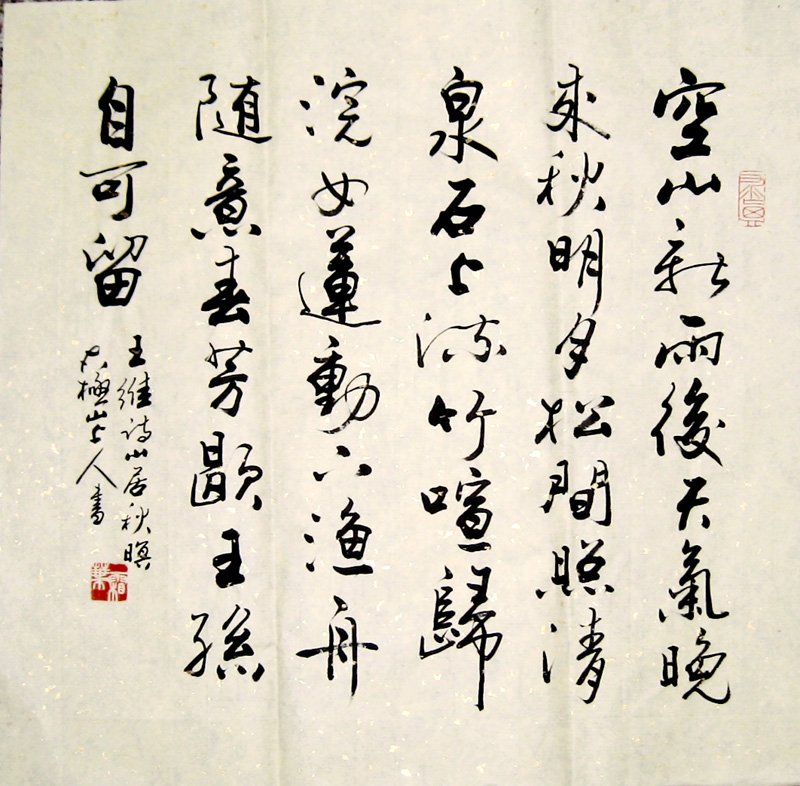 空山新雨後天氣晚
來秋明月松間照清
泉石上流竹喧歸
浣女蓮動下漁舟
随意春芳歇王孫
自可留
王維诗山居秋暝
太極山上人書